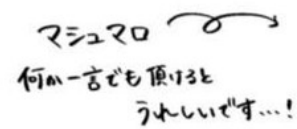 マシュマロ
何か一言でも頂けると
うれしいです…!